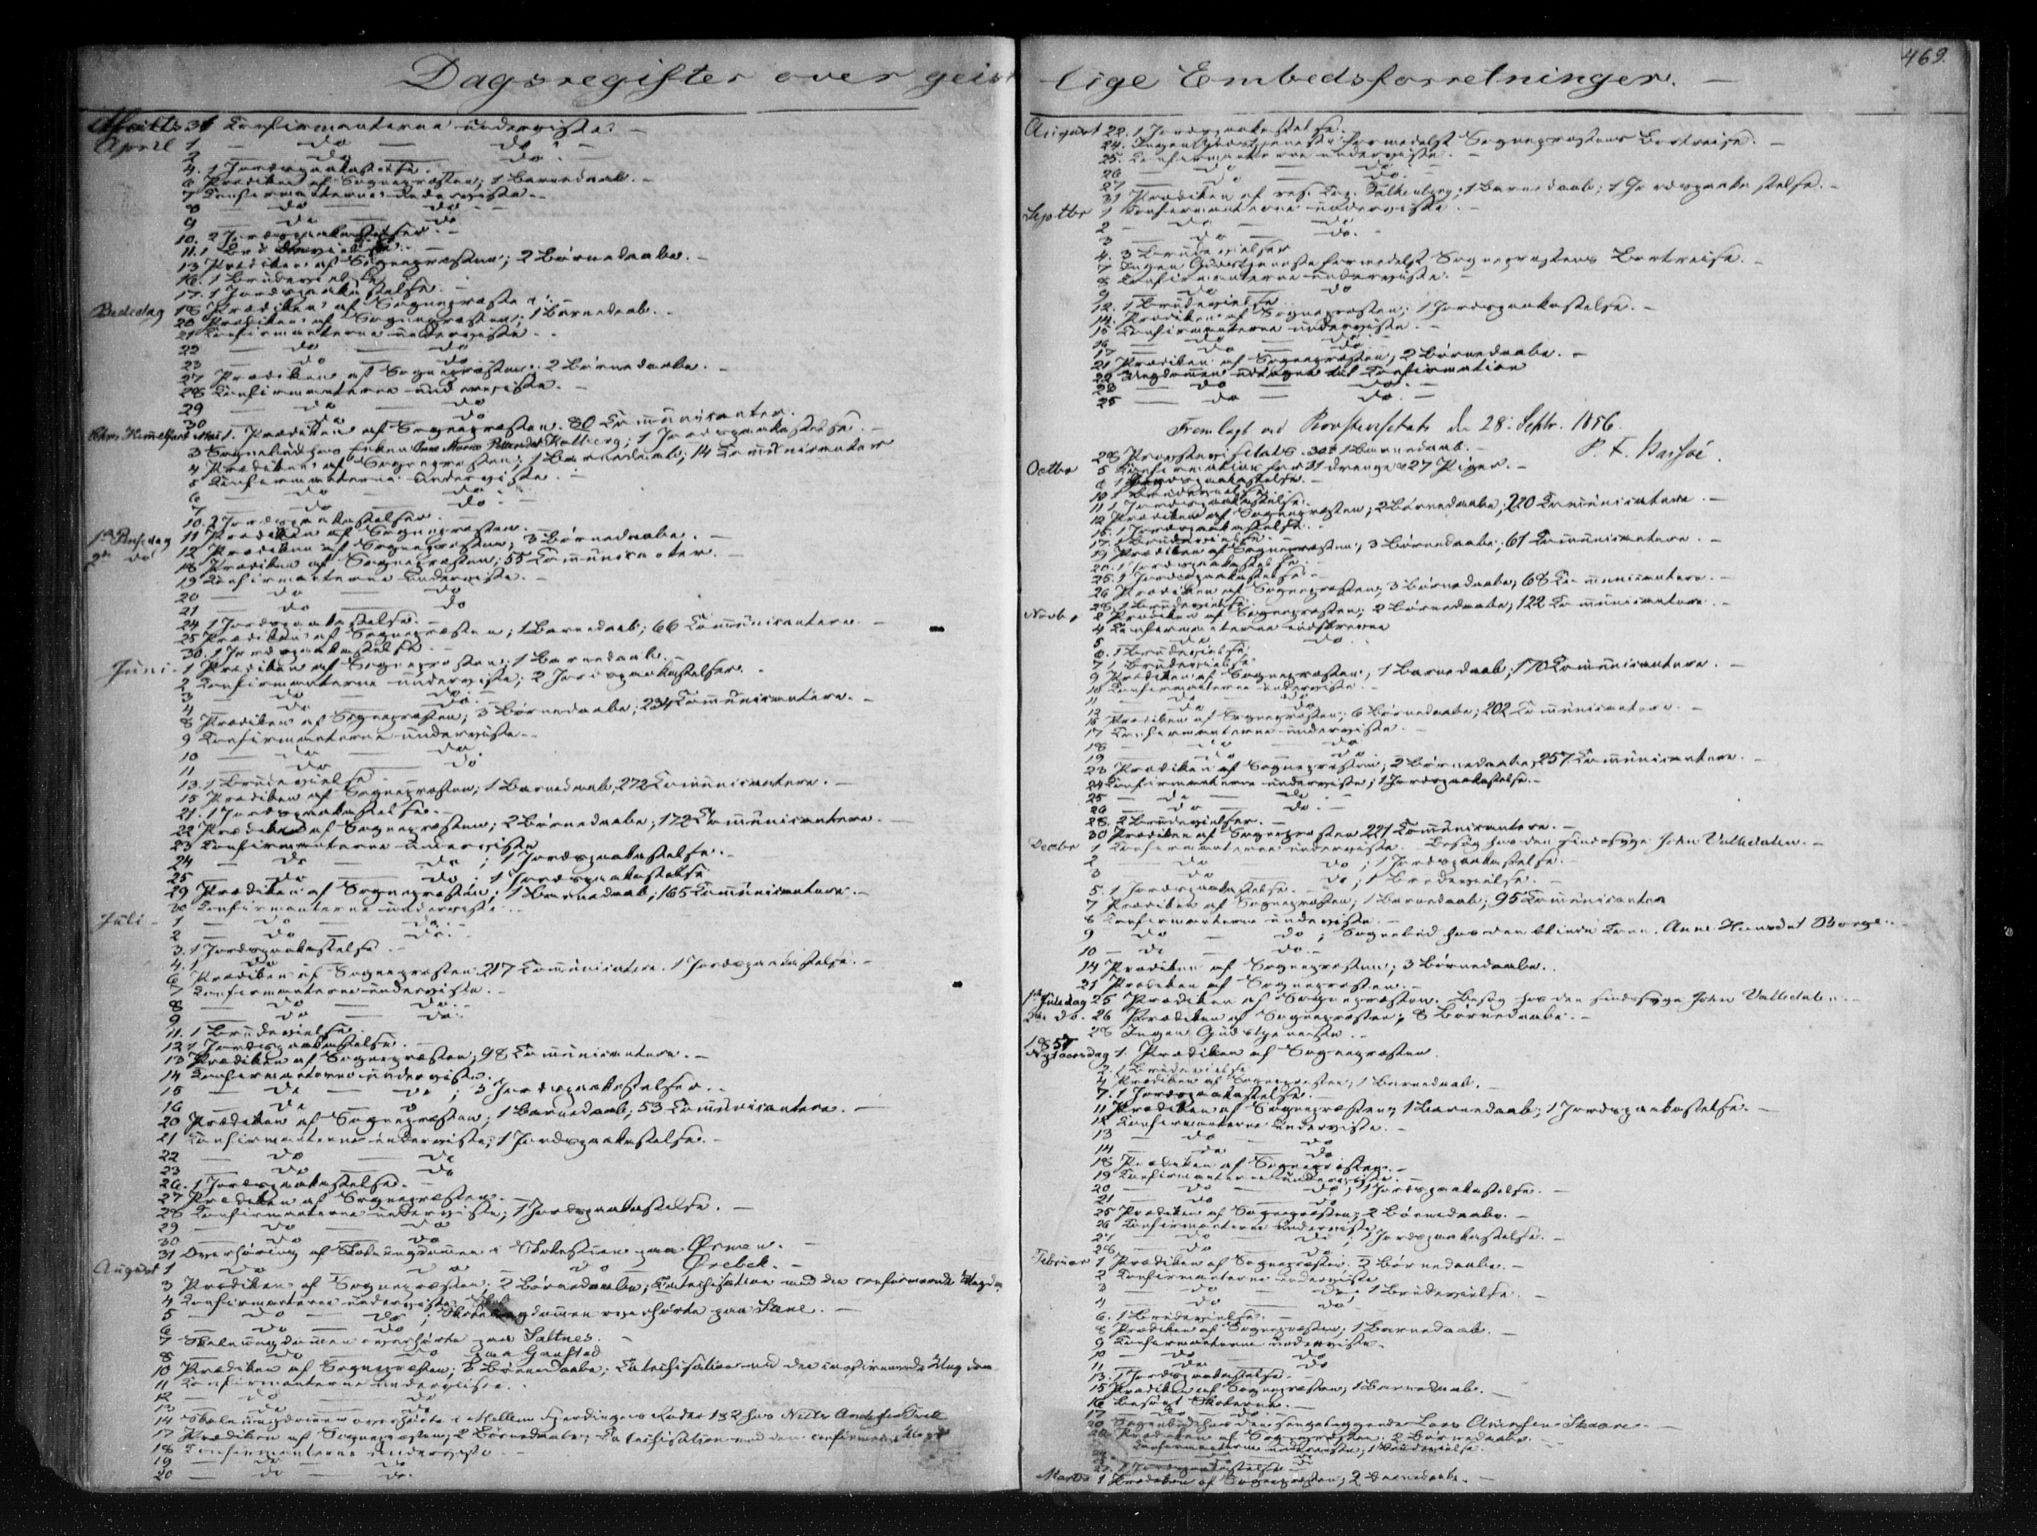 Dagsregister over geist
Martii 31 Konfirmanterne underviste. —
April 1 — do — do. —
2 — do — do. —
4. 1 Jordspaakastelse.
6 Prædiken af Sognepræsten; 1 Barnedaab. —
7 Konfirmanterne underviste. —
8 — do — do. —
9 — do — do
10. 2 Jordspaakastelser. —
11. 1 Brudevielse. —
13 Prædiken af Sognepræsten; 2 Børnedaabe. —
16. 1 Brudevielse.
17. 1 Jordspaakastelse. —
Bededag 18 Prædiken af Sognepræsten.
20 Prædiken af Sognepræsten; 1 Barnedaab.
21 Konfirmanterne underviste.
22 — do — do
23 — do — do
27 Prædiken af Sognepræsten. 2 Børnedaabe. —
28 Konfirmanterne underviste. —
29 — do — do
30 — do — do
Chr. Himmelfart Mai 1. Prædiken af Sognepræsten. 80 Kommunicanter.
3 Sognebud hos Enken Petersdat. ; 1 Jordspaakastelse. —
4 Prædiken af Sognepræsten; 1 Barnedaab; 14 Kommunicanter
5 Konfirmanterne underviste. —
6 — do — do. —
7 — do — do. —
10. 2 Jordspaakastelser. —
1ste Pinsdag 11 Prædiken af Sognepræsten.
2den do 12 Prædiken af Sognepræsten; 3 Børnedaabe. —
18 Prædiken af Sognepræsten; 55 Kommunicanter. —
19 Konfirmanterne underviste. —
20 — do — do
21 — do — do
24 1 Jordspaakastelse. —
25 Prædiken af Sognepræsten; 1 Barnedaab; 66 Kommunicantere. —
30. 1 Jordspaakastelse.
Juni. 1 Prædiken af Sognepræsten; 1 Barnedaab. —
2 Konfirmanterne underviste; 2 Jordspaakastelser. —
3 — do — do. —
4 — do — do.
8 Prædiken af Sognepræsten; 3 Børnedaabe; 234 Kommunicantere. —
9 Konfirmanterne underviste. —
10 — do — do.
11 — do — do
13. 1 Brudevielse.
15 Prædiken af Sognepræsten; 1 Barnedaab, 272 Kommunicantere. —
21. 1 Jordspaakastelse. —
22 Prædiken af Sognepræsten; 2 Børnedaabe; 172 Kommunicantere. —
23 Konfirmanterne underviste
24 — do — do; 1 Jordspaakastelse. —
25 — do — do; 1 Jordspaakastelse
29 Prædiken af Sognepræsten; 1 Barnedaab; 165 Kommunicantere. —
30 Konfirmanterne underviste.
Juli. 1 — do — do. —
2 — do — do. —
3. 1 Jordspaakastelse. —
4. 1 do
6 Prædiken af Sognepræsten. 217 Kommunicantere. 1 Jordspaakastelse. —
7 Konfirmanterne underviste. —
8 — do — do. —
9 — do — do. —
11. 1 Brudevielse.
12 1 Jordspaakastelse. —
13 Prædiken af Sognepræsten; 98 Kommunicantere. —
14 Konfirmanterne underviste.
15 — do — do; 3 Jordspaakastelser. —
16 — do — do
20 Prædiken af Sognepræsten; 1 Barnedaab; 53 Kommunicantere. —
21 Konfirmanterne underviste; 1 Jordspaakastelse. —
22 — do — do
23 — do — do
26. 1 Jordspaakastelse. —
27 Prædiken af Sognepræsten. —
28 Konfirmanterne underviste; 1 Jordspaakastelse. —
29 — do — do
30 — do — do
31 Overhøring af Skoleungdommen i Skolestuen paa . —
August 1 — do — do — do — Ørebek. —
3 Prædiken af Sognepræsten. 2 Børnedaabe; Katechisation med den confirmerede Ungdom.
4 Konfirmanterne underviste.
5 — do — do; Skoleungdommen overhørte paa Lane. —
6 — do — do
7 Skoleungdommen overhørte paa Saltnes. —
8 — do — do paa Ganstad
10 Prædiken af Sognepræsten; Børnedaabe; Katechisation med den confirmerede Ungdom
11 Konfirmanterne underviste. —
12 — do — do
13 — do — do
14 Skoleungdommen overhørte i Mellem Fjerdingens Roder 1 & 2 hos Niels Andersen
17 Prædiken af Sognepræsten; 2 Børnedaabe; Katechisation med den confirmerede Ungd
18 Konfirmanterne underviste. —
19 — do — do
20 — do — do.
lige Embedsforretninger. — 469.
August 22. 1 Jordspaakastelse.
24. Ingen Gudstjeneste formedelst Sognepræstens Bortreise. —
25. Konfirmanterne underviste. —
26 — do — do.
27 — do — do. —
31 Prædiken af Falkenberg; 1 Barnedaab; 1 Jordspaakastelse. —
Septbr 1 Konfirmanterne underviste. —
2 — do — do
3 — do — do. —
4. 3 Brudevielser
7 Ingen Gudstjeneste formedelst Sognepræstens Bortreise. —
8 Konfirmanterne underviste. —
9 — do — do
12. 1 Brudevielse
14. Prædiken af Sognepræsten; 1 Jordspaakastelse. —
15 Konfirmanterne underviste. —
16 — do — do
17 — do — do
21 Prædiken af Sognepræsten; 2 Børnedaabe. —
22 Ungdommen udtagne til Konfirmation
23 — do — do. —
25 — do — do. —
Fremlagt ved Provstevisitats den 28. Septr. 1856.
28 Provstevisitats. 1 Barnedaab. —
Octbr 5 Konfirmation for 31 Drenge & 27 Piger. —
8 1 Jordspaakastelse. —
10 1 Brudevielse.
11 1 Jordspaakastelse.
12 Prædiken af Sognepræsten; 2 Børnedaabe; 220 Kommunicantere. —
15. 1 Jordspaakastelse.
17. 1 Brudevielse. —
19 Prædiken af Sognepræsten; 3 Børnedaabe; 61 Kommunicantere. —
20. 1 Jordspaakastelse. —
25. 1 Jordspaakastelse. —
26 Prædiken af Sognepræsten; 3 Børnedaabe; 68 Kommunicantere. —
28. 1 Brudevielse.
Novbr 2 Prædiken af Sognepræsten; 2 Børnedaabe; 122 Kommunicantere. —
4 Konfirmanterne indskrevne
5 — do — do.
6. 1 Brudevielse.
7 1 Brudevielse.
9 Prædiken af Sognepræsten; 1 Barnedaab; 170 Kommunicantere. —
10 Konfirmanterne underviste. —
11 — do — do
12 — do — do
16 Prædiken af Sognepræsten; 6 Børnedaabe; 202 Kommunicantere. —
17 Konfirmanterne underviste. —
18 — do — do
19 — do — do
23 Prædiken af Sognepræsten; 2 Børnedaabe; 257 Kommunicantere. —
24 Konfirmanterne underviste; 1 Jordspaakastelse. —
25 — do — do. —
26 — do — do. —
28. 2 Brudevielser. —
30 Prædiken af Sognepræsten 221 Kommunicantere. —
Decbr 1 Konfirmanterne underviste. Besøg hos den sindssyge John Valledalen. —
2 — do — do; 1 Jordspaakastelse. —
3 — do — do; 1 Brudevielse. —
5. 1 Jordspaakastelse. —
7 Prædiken af Sognepræsten; 1 Barnedaab; 95 Kommunicanter
8 Konfirmanterne underviste. —
9 — do — do; Sognebud hos den blinde Anne Hansdat Borge. —
10 — do — do. —
14 Prædiken af Sognepræsten; 3 Børnedaabe. .
21 Prædiken af Sognepræsten. —
1ste Juledag 25 Prædiken af Sognepræsten. Besøg hos den sindssyge John Valledalen. —
2den do. 26 Prædiken af Sognepræsten; 8 Børnedaabe. —
28 Ingen Gudstjeneste. —
1857
Nytaarsdag 1. Prædiken af Sognepræsten.
2 1 Brudevielse
4 Prædiken af Sognepræsten; 1 Barnedaab. —
7. 1 Jordspaakastelse. —
11 Prædiken af Sognepræsten; 1 Barnedaab; 1 Jordspaakastelse. —
12 Konfirmanterne underviste. —
13 — do — do
14 — do — do
18 Prædiken af Sognepræsten. —
19 Konfirmanterne underviste. —
20 — do — do; 1 Jordspaakastelse. —
21 — do — do
25 Prædiken af Sognepræsten; 2 Børnedaabe. —
26 Konfirmanterne underviste
27 — do — do; 1 Jordspaakastelse. —
28 — do — do
Februar 1 Prædiken af Sognepræsten. 2 Børnedaabe. —
2 Konfirmanterne underviste
3 — do — do; 1 Brudevielse. —
4 — do — do
6. 1 Brudevielse. —
8 Prædiken af Sognepræsten; 1 Barnedaab. —
9 Konfirmanterne underviste. —
10 — do — do
11 — do — do
13. 1 Jordspaakastelse. —
15 Prædiken af Sognepræsten; 1 Barnedaab. —
16 Besøgt Skolerne. —
17 — do — do. —
20 Sognebud hos den sengeliggende Lars Skaare. —
22 Prædiken af Sognepræsten. 2 Børnedaabe. —
Konfirmanterne underviste; 1 Brudevielse.
— do — do
1 Jordspaakastelse
Marts 1 Prædiken af Sognepræsten; 2 Børnedaabe. —